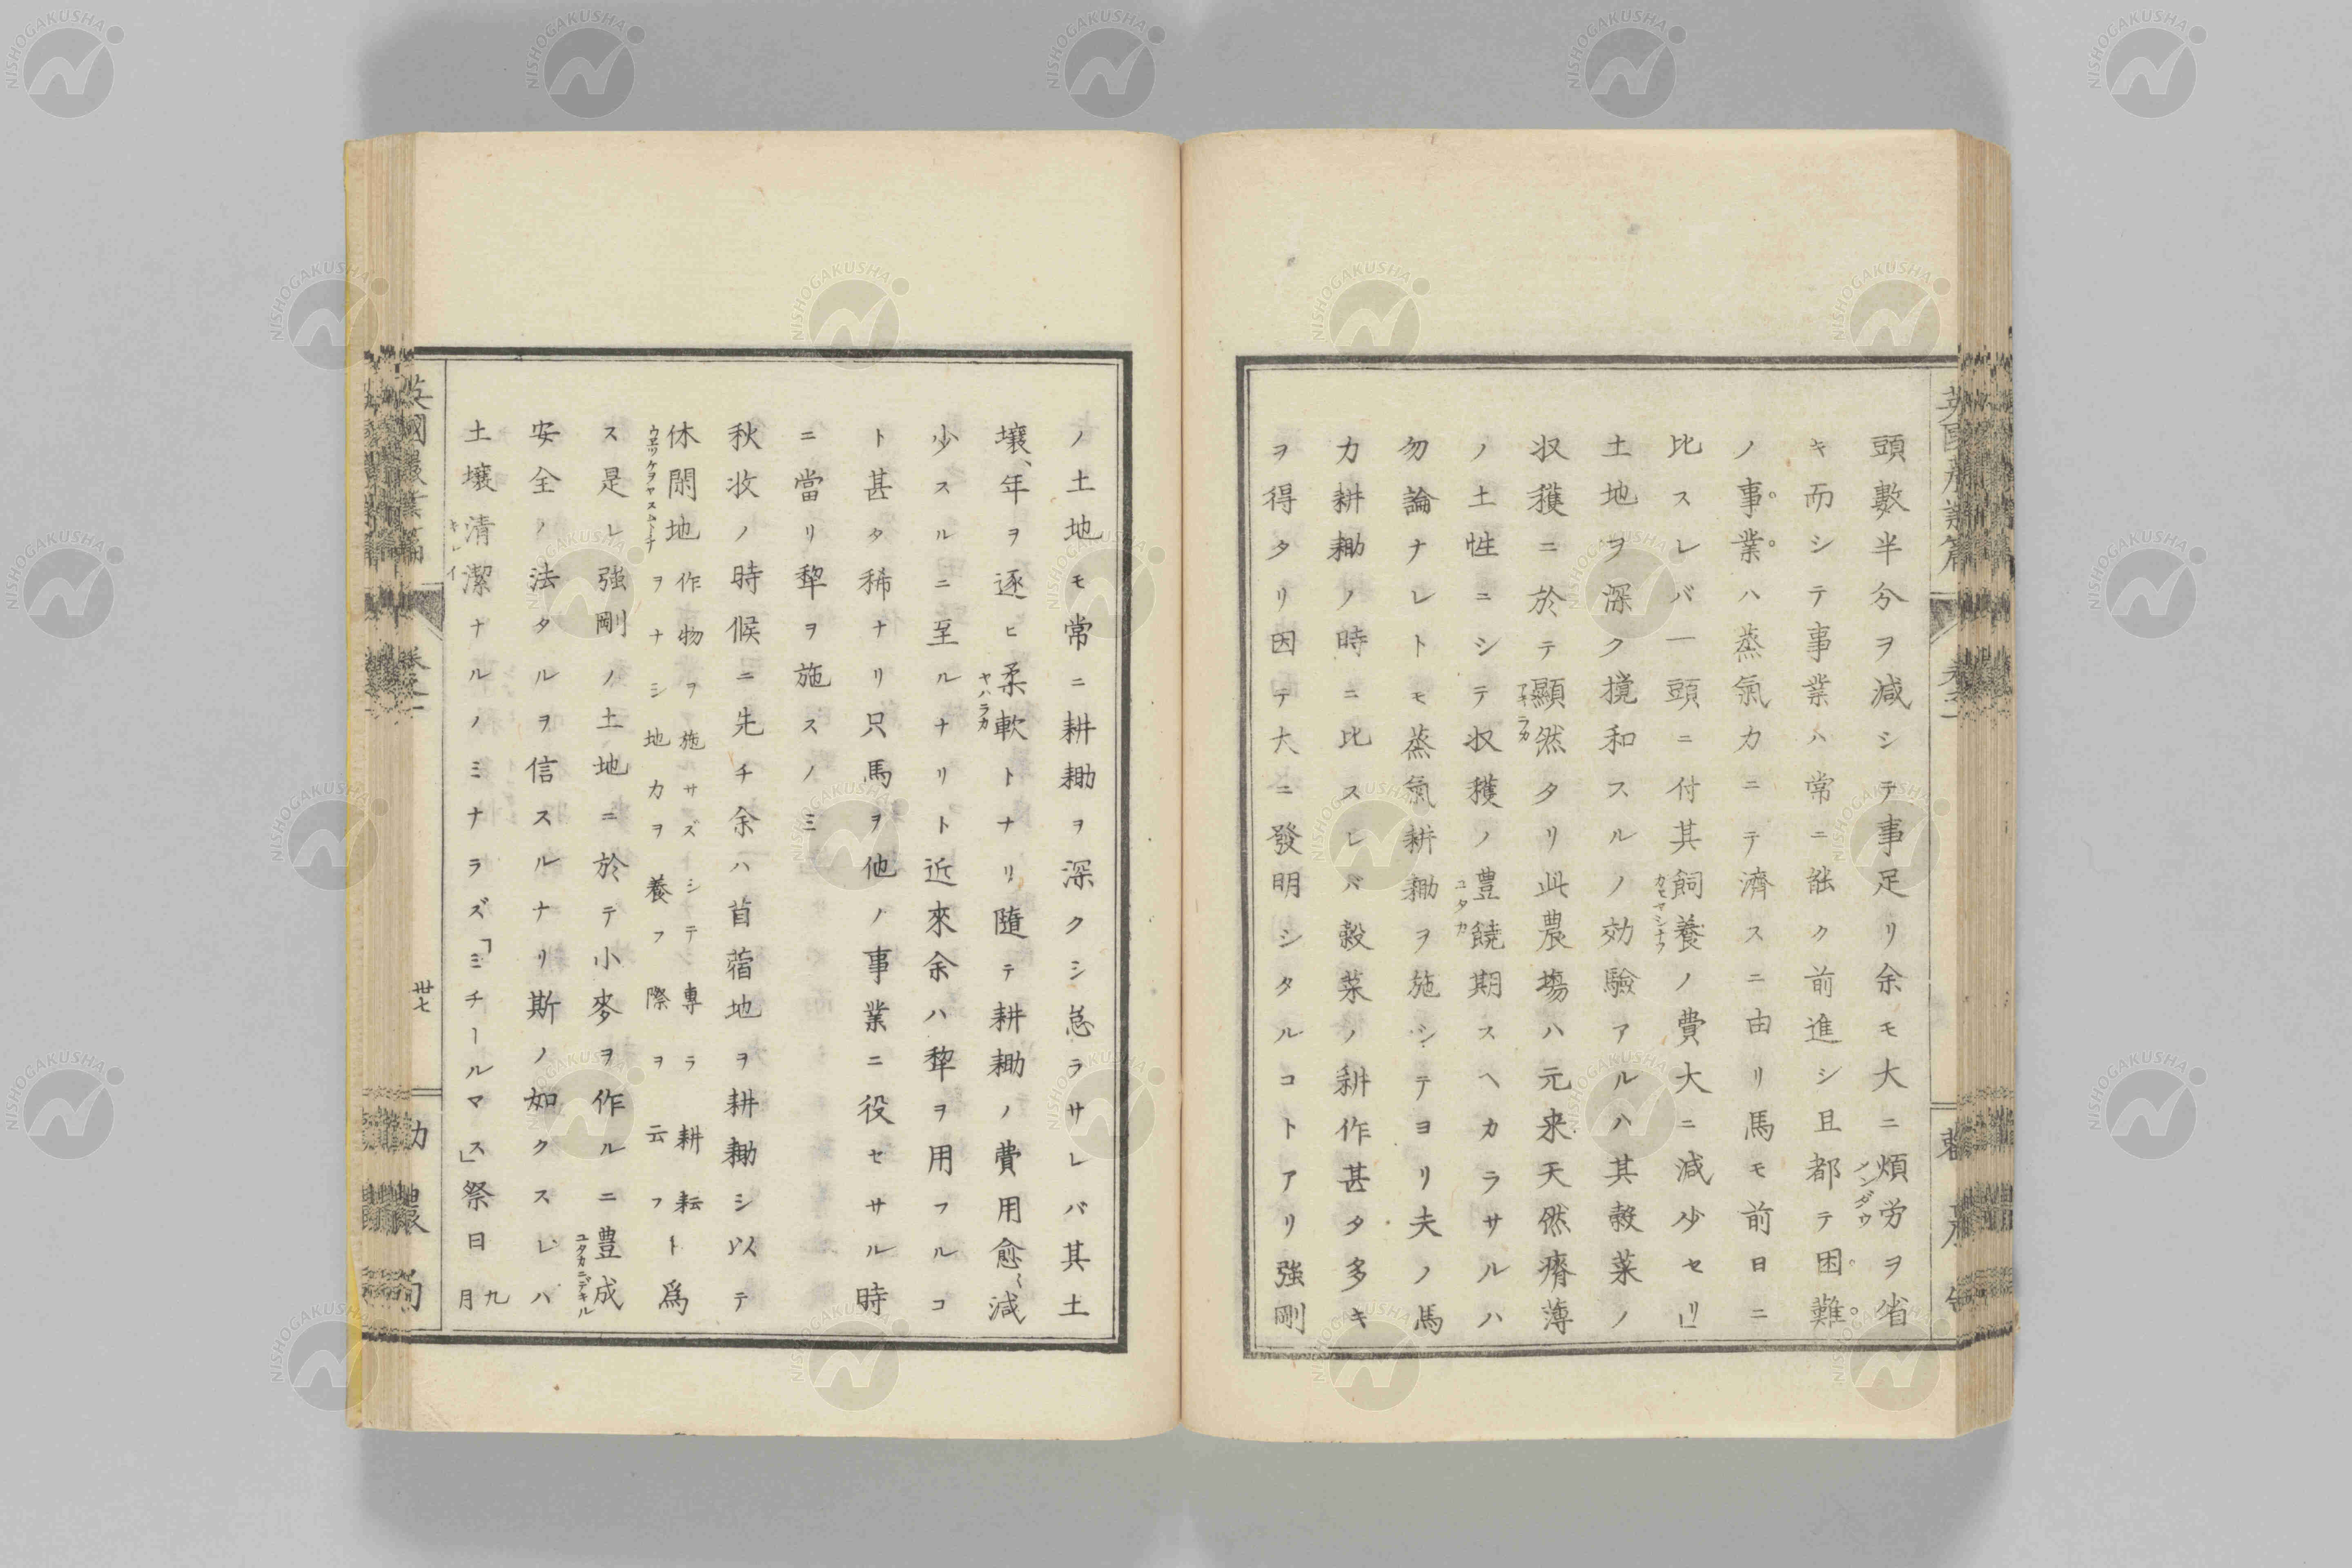 頭數半分ヲ減シテ事足リ余モ大ニ煩労ヲ省
キ而シテ事業ハ常ニ能ク前進シ且都テ困難
ノ事業ハ蒸氣力ニテ濟スニ由リ馬モ前日ニ
比スレバ一頭ニ付其飼養ノ費大ニ減少セリ」
土地ヲ深ク攪和スルノ効驗アルハ其穀菜ノ
収獲ニ於テ顯然タリ此農塲ハ元来天然瘠薄
ノ土性ニシテ収穫ノ豊饒期スヘカラサルハ
勿論ナレトモ蒸氣耕耡ヲ施シテヨリ夫ノ馬
力耕耡ノ時ニ比スレバ穀菜ノ耕作甚タ多キ
ヲ得タリ因テ大ニ發明シタルコトアリ強剛
ノ土地モ常ニ耕耡ヲ深クシ怠ラサレバ其土
壤、年ヲ逐ヒ柔軟トナリ隨テ耕耡ノ費用愈〻減
少スルニ至ルナリト近來余ハ犂ヲ用フルコ
ト甚タ稀ナリ只馬ヲ他ノ事業ニ役セサル時
ニ當リ犂ヲ施スノミ
秋收ノ時候ニ先チ余ハ苜蓿地ヲ耕耡シ以テ
休閑地作物ヲ施サズシテ專ラ耕耘ヲナシ地力ヲ養フ際ヲ云フト爲
ス是レ強剛ノ土地ニ於テ小麥ヲ作ルニ豊成
安全ノ法タルヲ信スルナリ斯ノ如クスレハ
土壤清潔ナルノミナラズ「ミチールマス」祭日九月
卅七
NISHOGAKUSHA